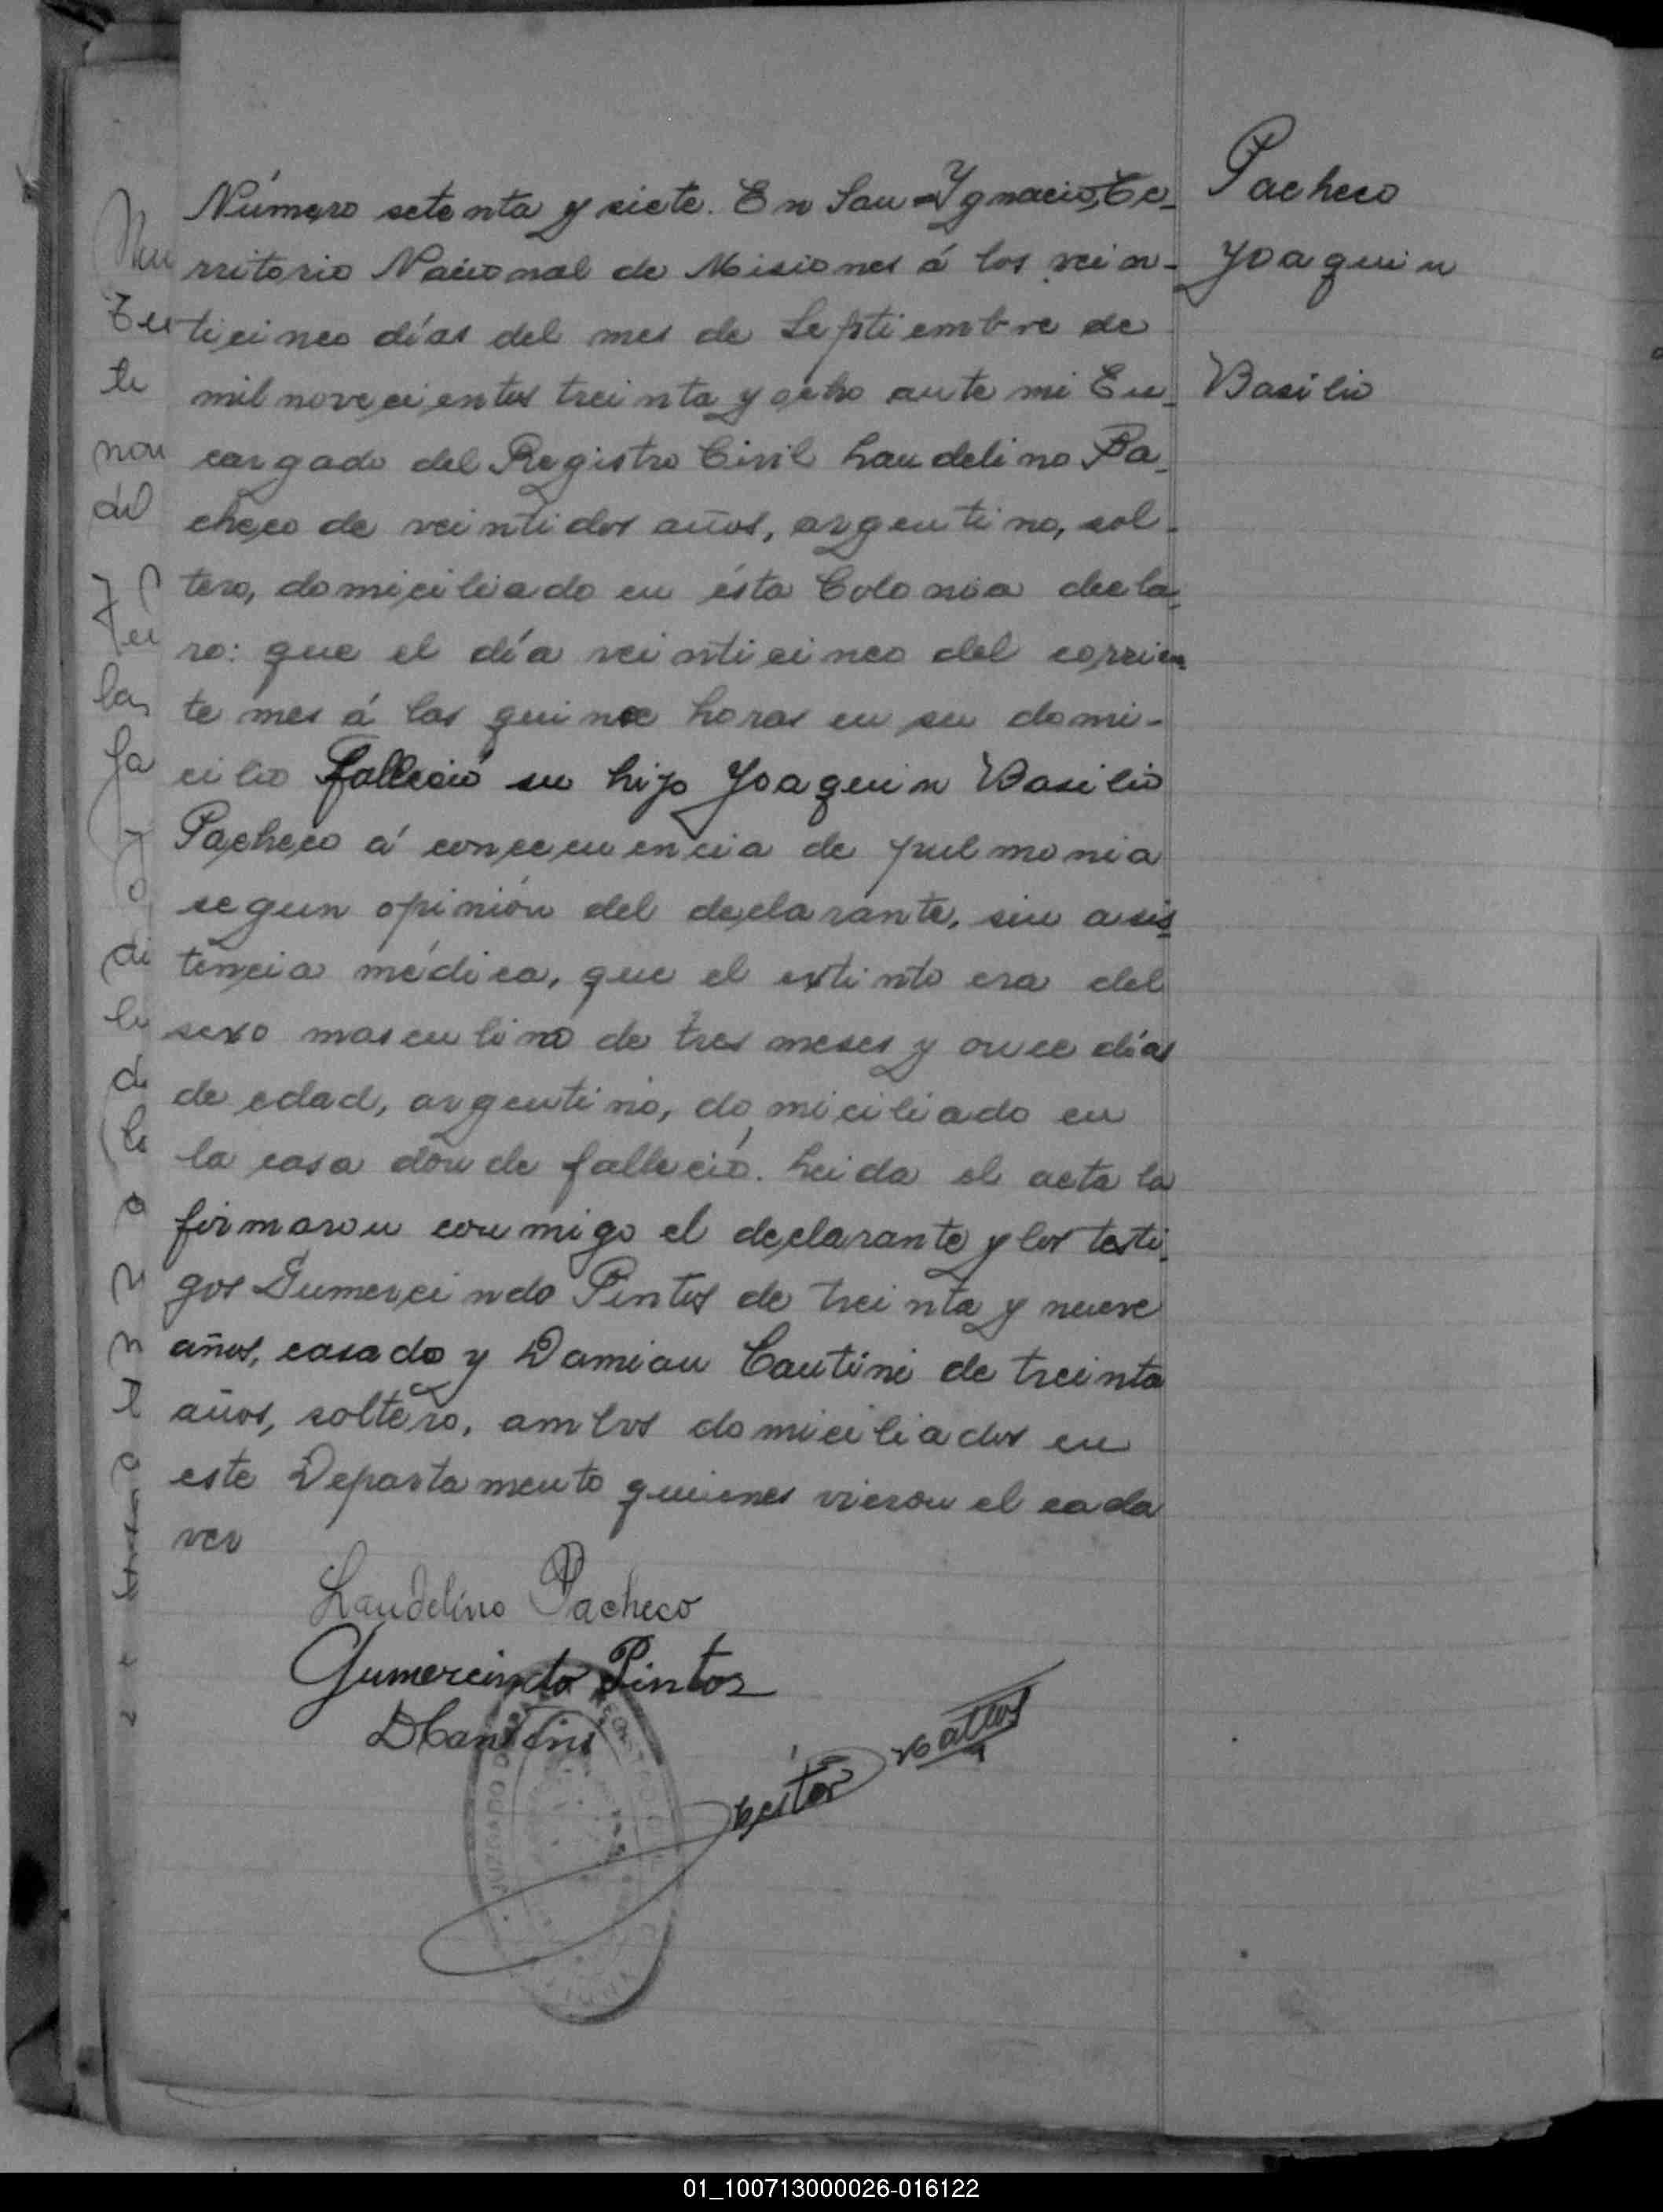 Número setenta y siete. En San Ygnacio, Te-
rritorio Nacional de Misiones á los vein-
ticinco días del mes de Septiembre de
mil novecientos treinta y ocho ante mi En-
cargado del Registro Civil Laudelino Pa-
checo de veintidos años, argentino, sol-
tero, domiciliado en ésta Colonia decla-
ro: que el día veinticinco del corrien
te mes á las quince horas en su domi-
cilio falleció su hijo Joaquin Basilio
Pacheco á concecuencia de pulmonia
segun opinión del declarante, sin asis
tencia médica, que el extinto era del
sexo masculino de tres meses y once días
de edad, argentino, domiciliado en
la casa donde falleció. Leida el acta la
firmaron conmigo el declarante y los testi-
gos Gumercindo Pintos de treinta y nueve
años, casado y Damian Cantini de treinta
años, soltero, ambos domiciliados en
este Departamento quienes vieron el cada
ver
Laudelino Pacheco
Gumercindo Pintos
DCantini
Pacheco
Joaquin
Basilio
01_100713000026-016122